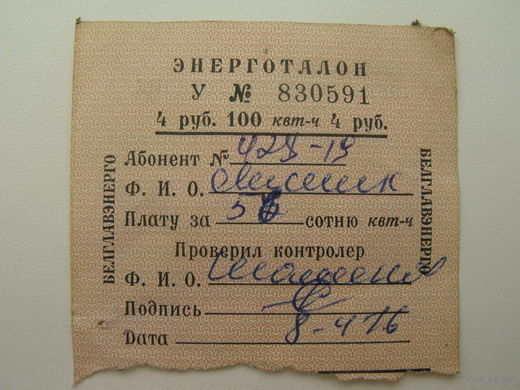 ЭНЕРГОТАЛОН
У № 830591
4 руб. 100 квт-ч 4 руб.
БЕЛГЛАВЭНЕРГО
Абонент № 428-19
Ф. И. О.
Плату за 56 сотню квт-ч
Проверил контролер
Ф. И. О.
Подпись
Дата 8-4 76
БЕЛГЛАВЭНЕРГО